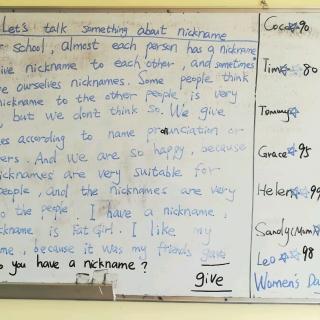 Let's talk something about nickname
school, almost each person has a nickname
ive nickname to each other, and sometimes
e ourselves nicknames. Some people think
nickname to the other people is very
, but we dont think so. We give
es according to name pronunciation or
ers. And we are so happy, because
icknames are very suitable for
eople, and the nicknames are very
o the people. I have a nickname,
ckname is Fat Girl. I like my
me, because it was my friends gave
o you have a nickname?
give
Coco 90
Tim 80
Tommy
Grace 95
Helen 99
Sandy(Mum)
Leo 98
Women's Da